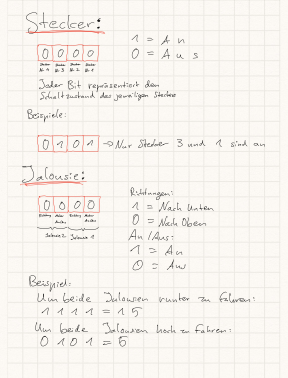 Stecker:
0 0 0 0
1 = An
0 = Aus
Stecker Stecker Stecker Stecker
Nr. 4 Nr. 3 Nr. 2 Nr. 1
Jeder Bit repräsentiert den
Schaltzustand des jeweiligen Steckers
Beispiele:
0 1 0 1 → Nur Stecker 3 und 1 sind an
Jalousie:
0 0 0 0
Richtung Motor Richtung Motor
An/Aus An/Aus
Jalousie 2 Jalousie 1
Richtungen:
1 = Nach Unten
0 = Nach Oben
An/Aus:
1 = An
0 = Aus
Beispiel:
Um beide Jalousien runter zu fahren:
1 1 1 1 = 15
Um beide Jalousien hoch zu fahren:
0 1 0 1 = 5